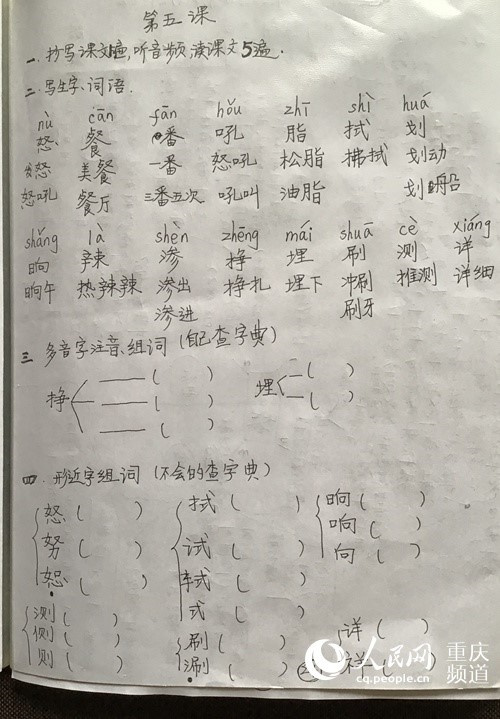 第五课
一.抄写课文1遍,听音频,读课文5遍.
二.写生字、词语.
nù cān fān hǒu zhī shì huá
怒 餐 番 吼 脂 拭 划
怒 美餐 一番 怒吼 松脂 拂拭 划动
怒吼 餐厅 三番五次 吼叫 油脂 划船
shǎng là shèn zhēng mái shuā cè xiáng
晌 辣 渗 挣 埋 刷 测 详
晌午 热辣辣 渗出 挣扎 埋下 冲刷 推测 详细
渗进 刷牙
三 多音字注音、组词(自己查字典)
挣 ——( ) 埋 —( )
——( ) —( )
——( )
四.形近字组词(不会的查字典)
怒( ) 拭( ) 晌( )
努( ) 试( ) 响( )
恕( ) 轼( ) 向( )
式( )
测( ) 刷( ) 详( )
侧( ) 涮( ) 祥( )
则( )
人民网 重庆频道
cq.people.cn